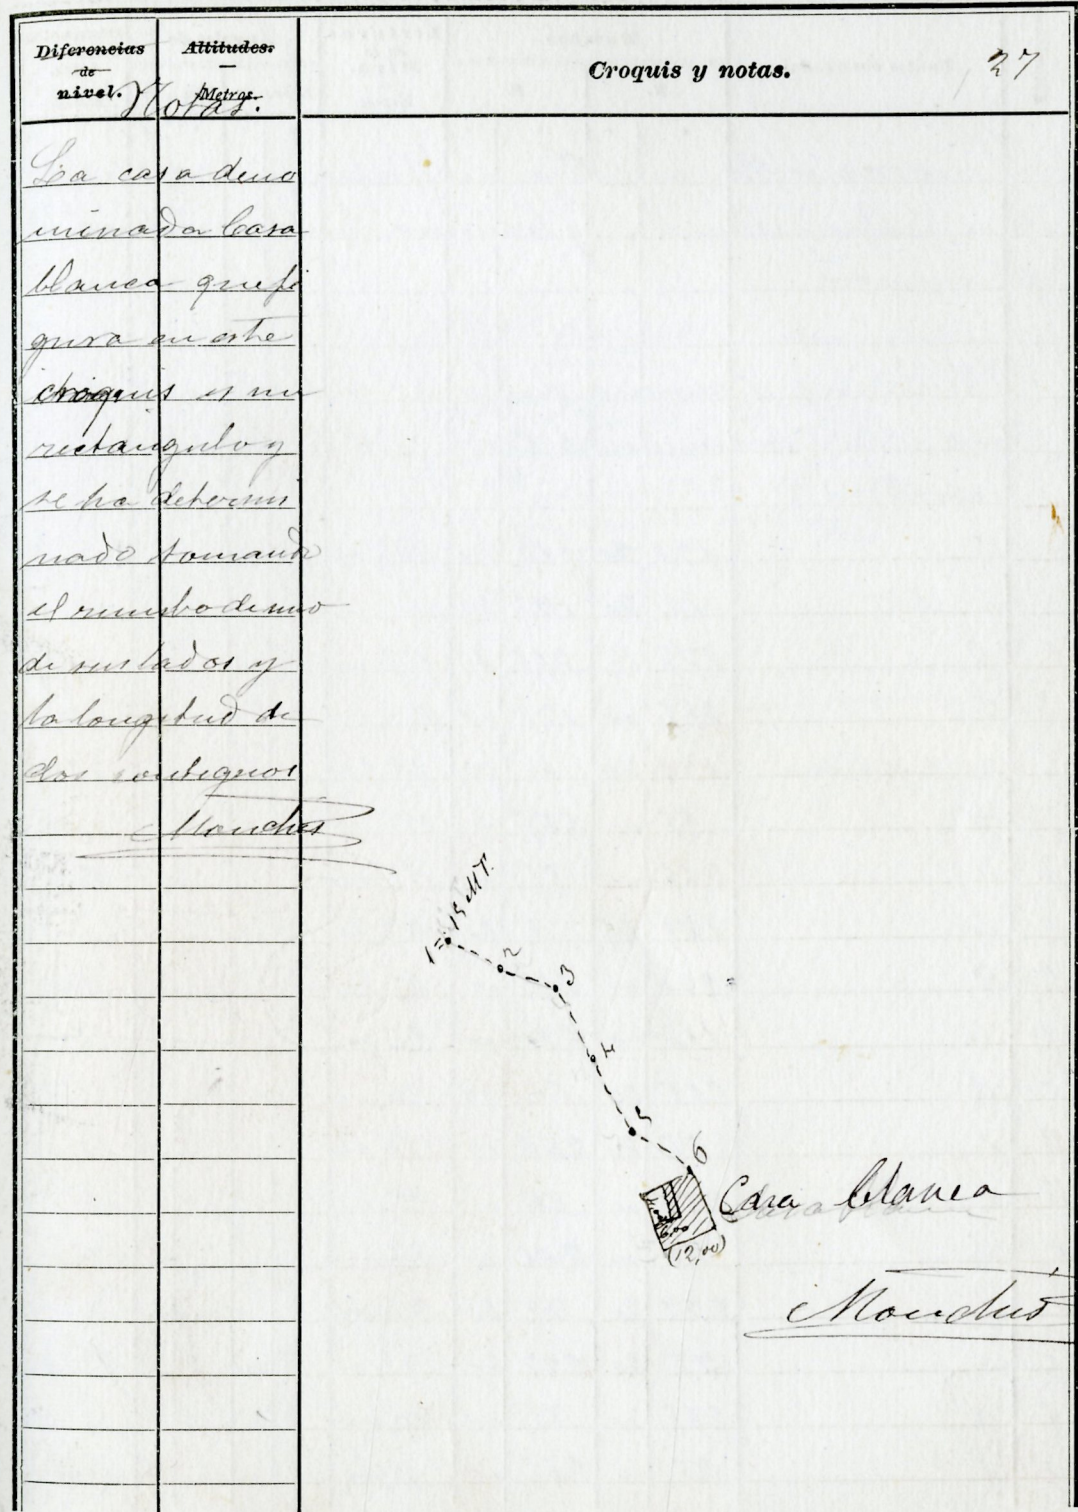 Diferencias
de
nivel.
Altitudes.
Metros.
Notas.
Croquis y notas.
27
La casa deno
minada Casa
blanca que fi
gura en este
croquis es un
rectangulo y
se ha determi
nado tomando
el rumbo de uno
de sus lados y
la longitud de
dos contiguos
1=15 MT.
2
3
4
5
6
Casa blanca
6,00
(12,00)